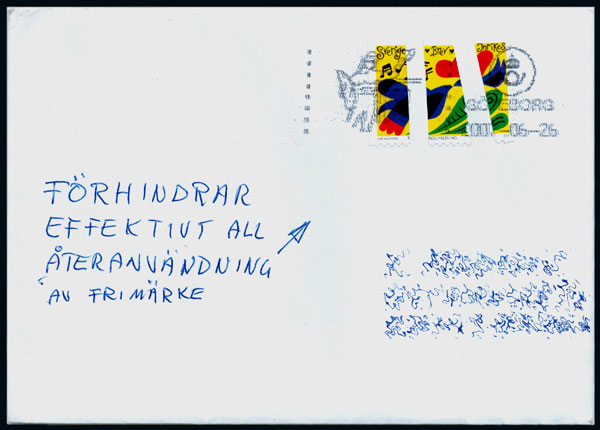 Sverige Brev Inrikes
GÖTEBORG
2001-06-26
FÖRHINDRAR
EFFEKTIVT ALL
ÅTERANVÄNDNING
AV FRIMÄRKE